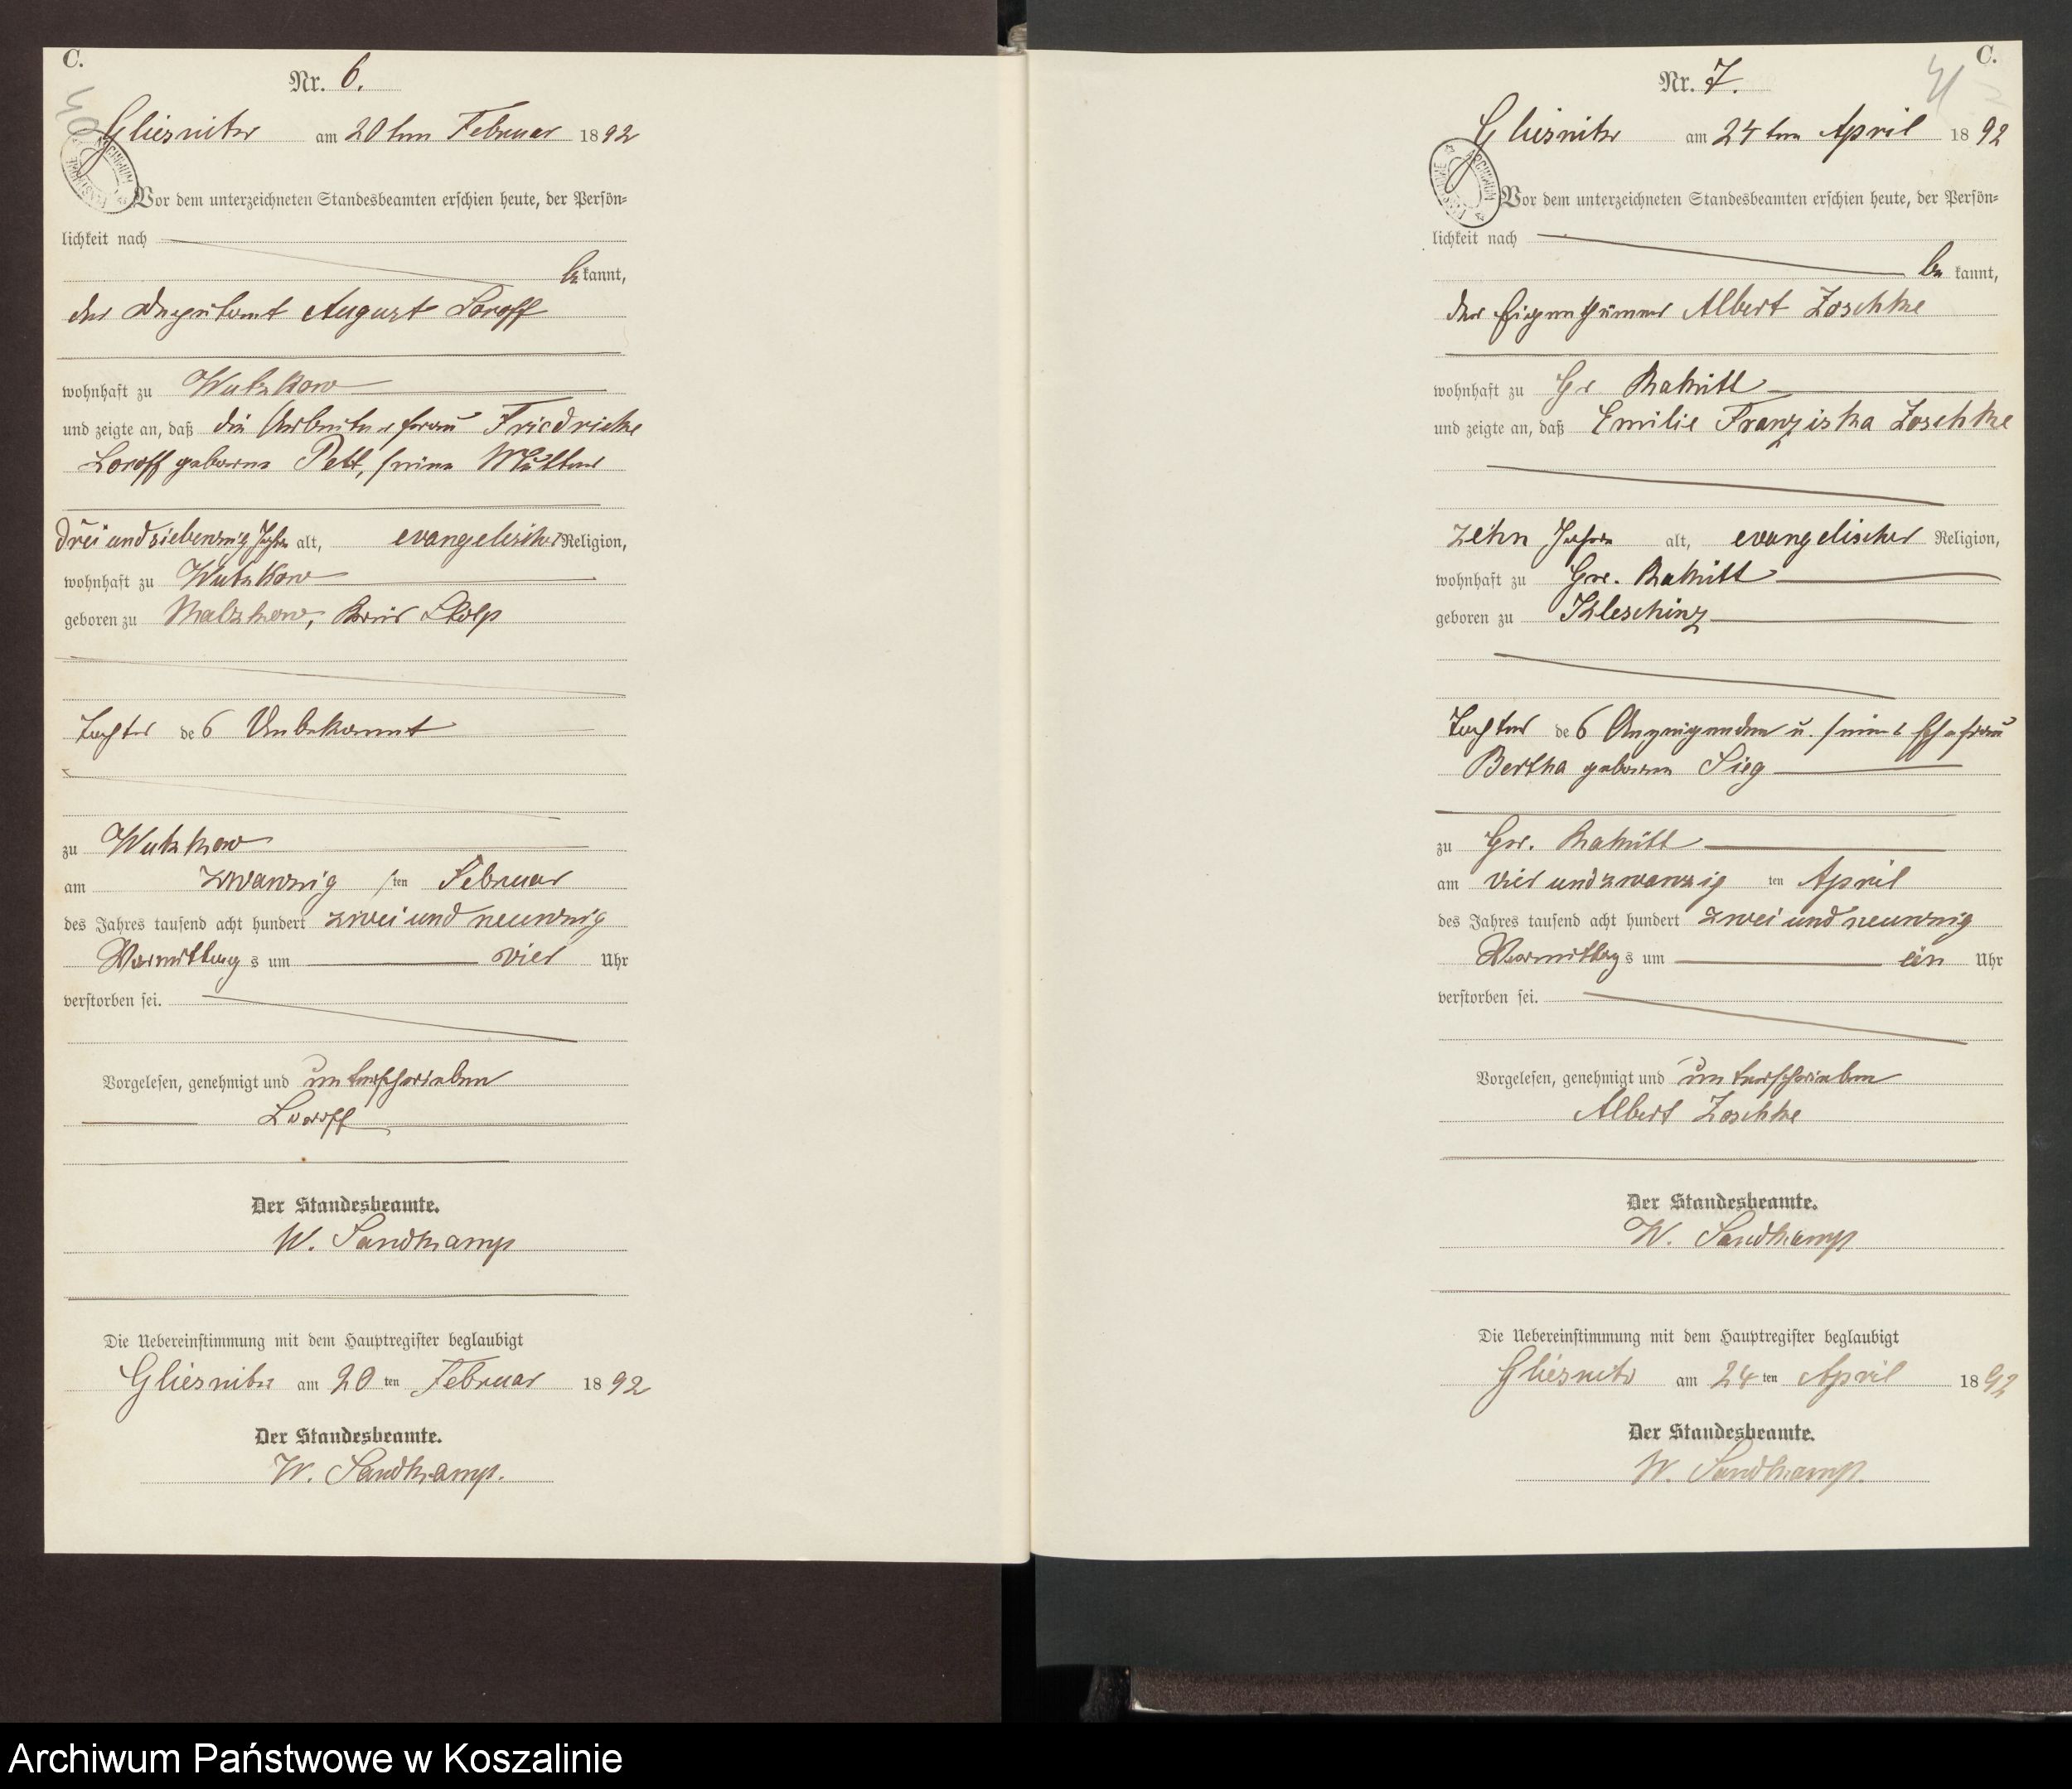 C.
40
Nr. 6.
Gliesnitz am 20ten Februar 1892
ARCHIWUM
Vor dem unterzeichneten Standesbeamten erschien heute, der Persön=
lichkeit nach
be kannt,
der Deputant August Loroff
wohnhaft zu Wutzkow
und zeigte an, daß die Arbeiterfrau Friedricke
Loroff geborene Pett, seine Mutter
drei und siebenzig Jahre alt, evangelischer Religion,
wohnhaft zu Wutzkow
geboren zu Malzkow, Kreis Stolp
Tochter des Unbekannt
zu Wutzkow
am zwanzigsten Februar
des Jahres tausend acht hundert zwei und neunzig
Vormittags um vier Uhr
verstorben sei.
Vorgelesen, genehmigt und unterschrieben
Loroff
Der Standesbeamte.
W. Sandkamp
Die Uebereinstimmung mit dem Hauptregister beglaubigt
Gliesnitz am 20 ten Februar 1892
Der Standesbeamte.
W. Sandkamp.
C.
41
Nr. 7.
Gliesnitz am 24ten April 1892
ARCHIWUM
Vor dem unterzeichneten Standesbeamten erschien heute, der Persön=
lichkeit nach
be kannt,
der Eigenthümer Albert Zoschke
wohnhaft zu Gr Rakitt
und zeigte an, daß Emilie Franziska Zoschke
zehn Jahre alt, evangelischer Religion,
wohnhaft zu Gr. Rakitt
geboren zu Kleschinz
Tochter des Anzeigenden u. seiner Ehefrau
Bertha geborene Sieg
zu Gr. Rakitt
am vier und zwanzig ten April
des Jahres tausend acht hundert zwei und neunzig
Vormittags um ein Uhr
verstorben sei.
Vorgelesen, genehmigt und unterschrieben
Albert Zoschke
Der Standesbeamte.
W. Sandkamp
Die Uebereinstimmung mit dem Hauptregister beglaubigt
Gliesnitz am 24 ten April 1892
Der Standesbeamte.
W. Sandkamp.
Archiwum Państwowe w Koszalinie